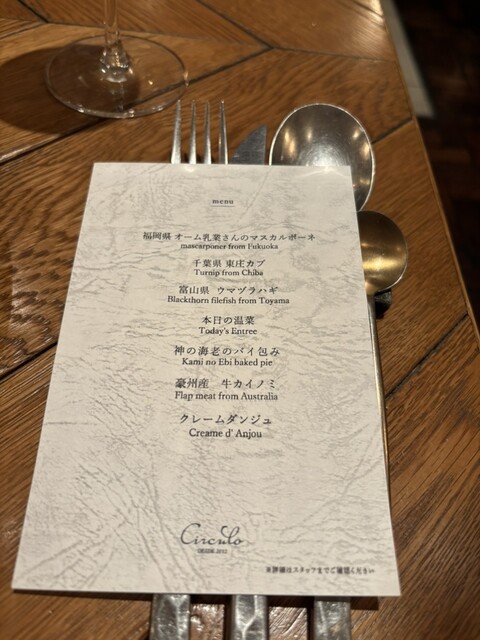 menu
福岡県 オーム乳業さんのマスカルポーネ
mascarponer from Fukuoka
千葉県 東庄カブ
Turnip from Chiba
富山県 ウマヅラハギ
Blackthorn filefish from Toyama
本日の温菜
Today's Entree
神の海老のパイ包み
Kami no Ebi baked pie
豪州産 牛カイノミ
Flap meat from Australia
クレームダンジュ
Creame d' Anjou
Circulo
※詳細はスタッフまでご確認ください